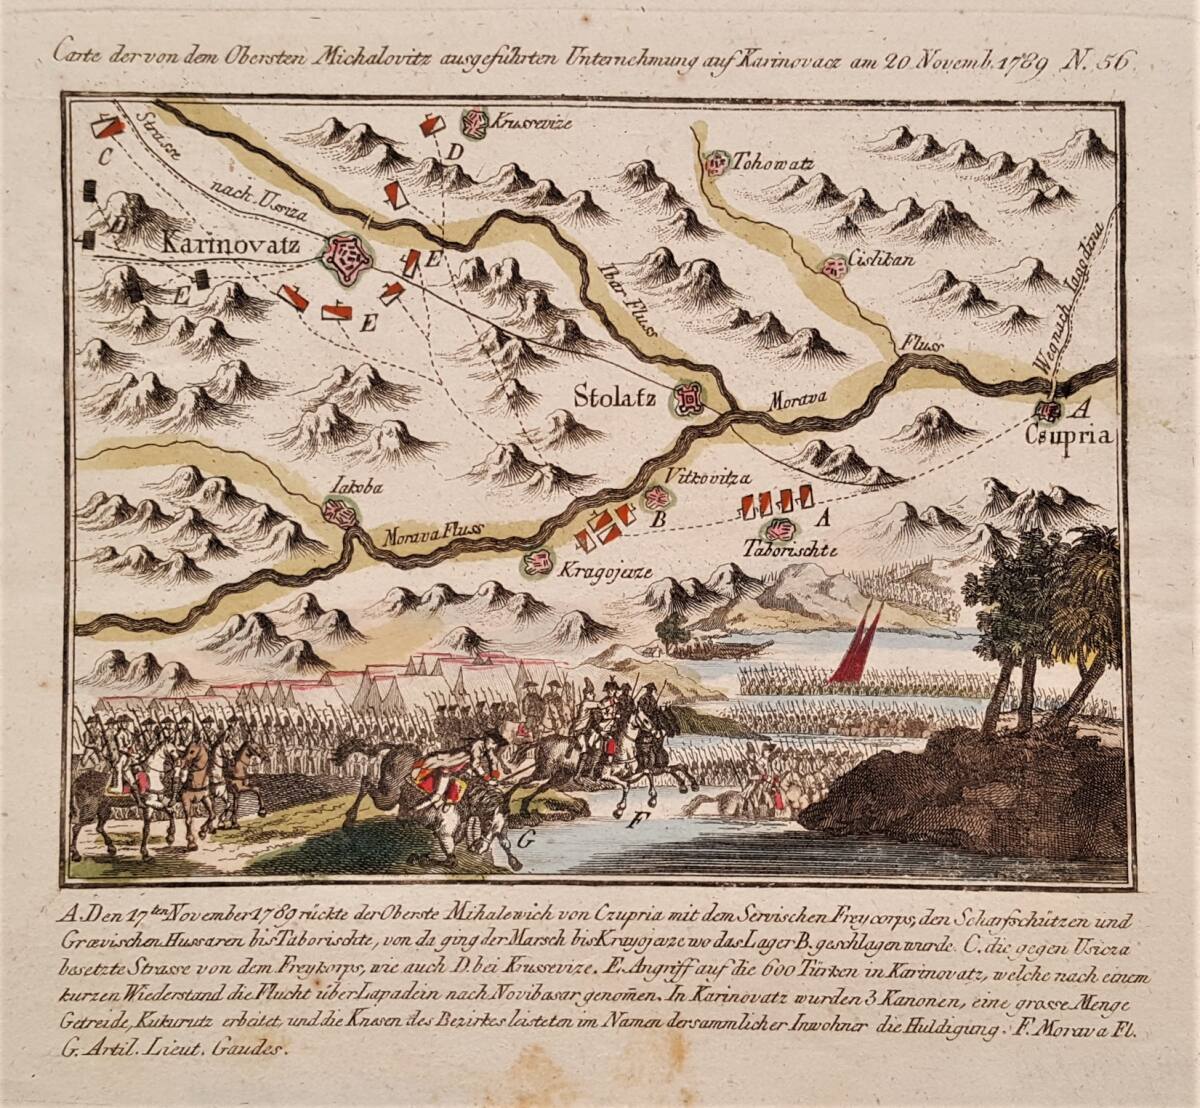 Carte der von dem Obersten Michalovitz ausgeführten Unternehmung auf Karinovacz am 20 Novemb. 1789 N. 56
C
Strasse
nach Ussiza
D
Krussevize
Tohowatz
D
Karinovatz
E
E
E
Cislikan
Ibar-Fluss
Fluss
Weg nach Jaagodina
Stolatz
Morava
A
Csupria
Iakoba
Vitkovitza
B
A
Morava Fluss
Taborischte
Kragojevze
F
G
A. Den 17ten November 1789 rückte der Oberste Mihalewich von Czupria mit dem Servischen Freycorps, den Scharfschützen und
Grævischen Hussaren bis Taborischte, von da ging der Marsch bis Krayojevze wo das Lager B. geschlagen wurde. C. die gegen Usicza
besetzte Strasse von dem Freykorps, wie auch D. bei Krussevize. E. Angriff auf die 600 Türken in Karinovatz, welche nach einem
kurzen Wiederstand die Flucht über Lapadein nach Novibasar genom̄en. In Karinovatz wurden 3 Kanonen, eine grosse Menge
Getreide, Kukurutz erbeitet, und die Knesen des Bezirkes leisteten im Namen der sammlicher Inwohner die Huldigung. F. Morava Fl.
G. Artil. Lieut. Gaudes.